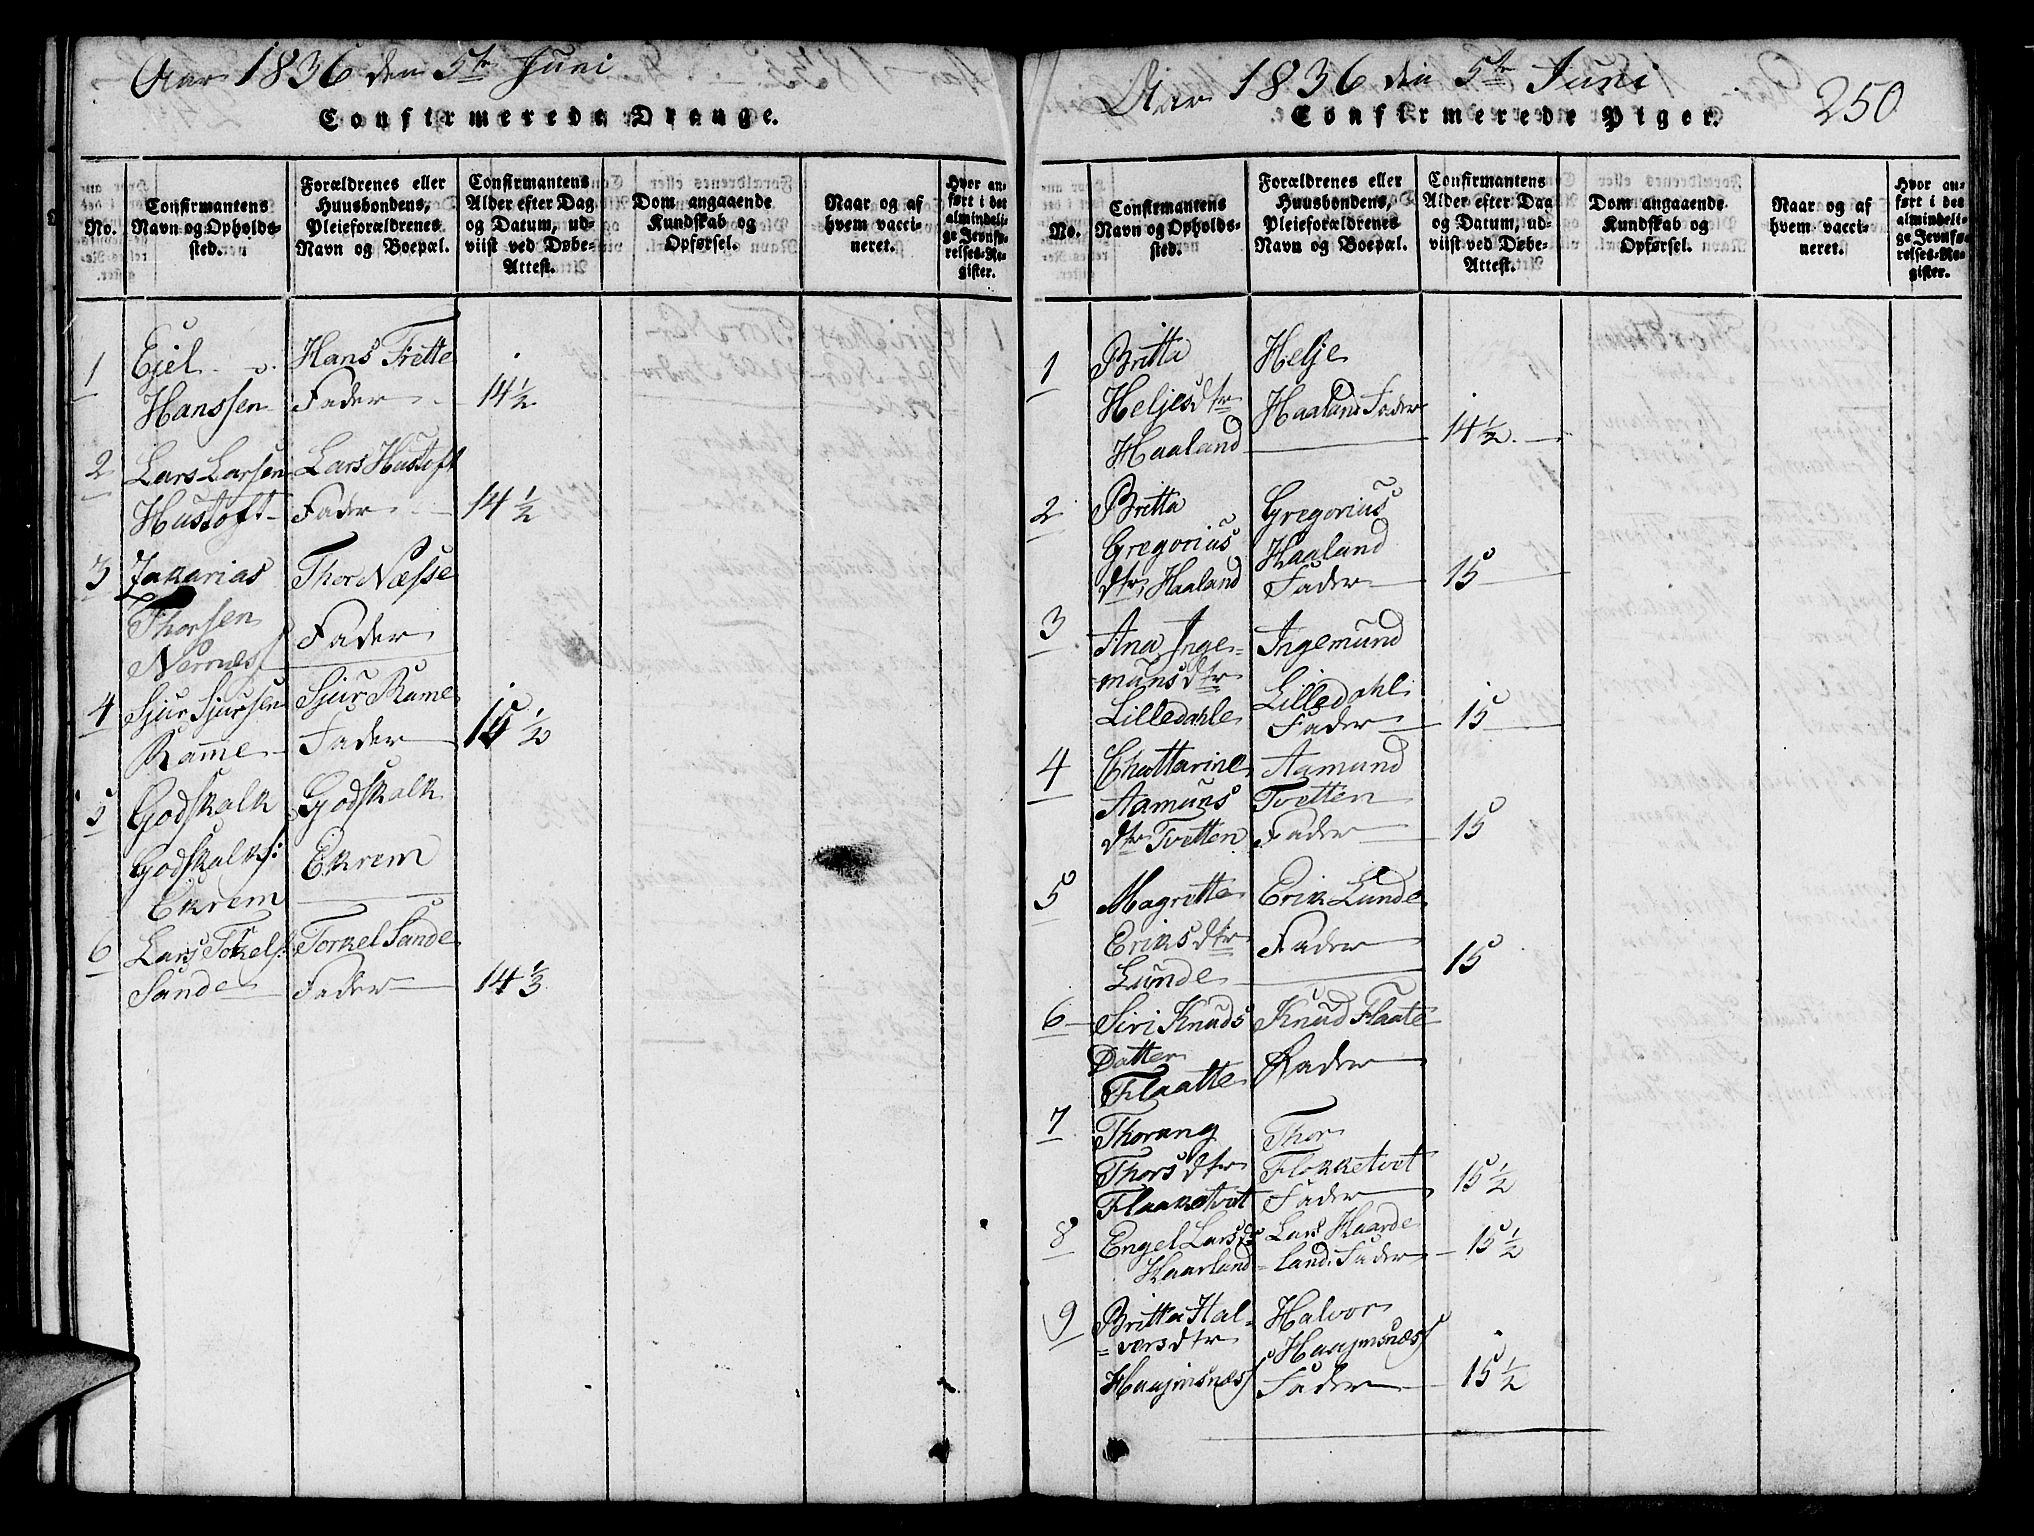 Aar 1836 den 5te Juni
Confirmerede Drenge.
No.
Confirmantens
Navn og Opholds-
sted.
Forældrenes eller
Huusbondens,
Pleieforældrenes
Navn og Boepæl.
Confirmantens
Alder efter Dag
og Datum, ud-
viist ved Døbe-
Attest.
Dom angaaende
Kundskab og
Opførsel.
Naar og af
hvem vacci-
neret.
Hvor an-
ført i det
almindeli-
ge Jevnfø-
relses-Re-
gister.
1 Ejel Hans Trette
Hanssen Fader 14 1/2
2 Lars Larsen Lars Hustoft
Hustoft Fader 14 1/2
3 Zakarias Thor Næsse
Thorsen
Nernæss Fader
4 Sjur Sjursen Sjur Rame
Rame Fader 15 1/2
5 Godskalk Godskalk
Godskalks: Ekrem
Ekrem
6 Lars Torkels: Torkel Sande
Sande Fader 14 1/3
Aar 1836 den 5te Juni
250
Confirmerede Piger.
No.
Confirmantens
Navn og Opholds-
sted.
Forældrenes eller
Huusbondens,
Pleieforældrenes
Navn og Boepæl.
Confirmantens
Alder efter Dag
og Datum, ud-
viist ved Døbe-
Attest.
Dom angaaende
Kundskab og
Opførsel.
Naar og af
hvem vacci-
neret.
Hvor an-
ført i det
almindeli-
ge Jevnfø-
relses-Re-
gister.
1 Britta Helje
Heljesdtr Haaland Fader
Haaland 14 1/2
2 Britta Gregorius
Gregorius Haaland
dtr Haaland Fader 15
3 Ana Inge- Ingemund
munsdtr Lilledahl
Lilledahle Fader 15
4 Chattarine Aamund
Aamuns Tvetten
dtr Tvetten Fader 15
5 Magrette Erik Lunde
Eriksdtr Fader
Lunde 15
6 Siri Knuds Knud Flaate
Datter Fader
Flaatte
7 Thorang Thor
Thorsdtr Flokketvet
Flaaketvet Fader 15 1/2
8 Engel Larsdr Lars Haarde
Haarland land. Fader 15 1/2
9 Britta Hal- Halvor
=vorsdtr Haajmsnæss
Haajmsnæss Fader 15 1/2